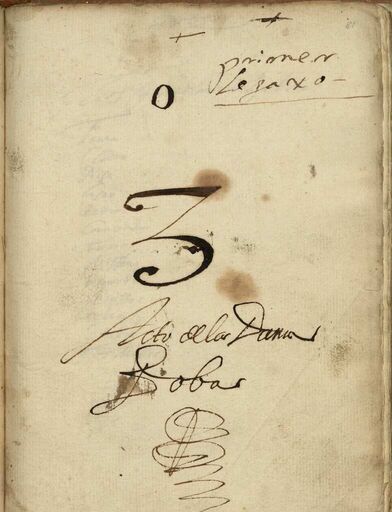 primer
legaxo
0
3
Acto de las Damas
Bobas